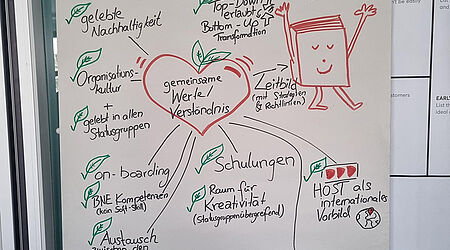 gelebte
Nachhaltigkeit
Top-Down
erlaubt &
Bottom-Up
Transformation
Organisations-
kultur
+
gelebt in allen
Statusgruppen
gemeinsame
Werte/
Verständnis
Leitbild
(mit Strategien
& Richtlinien)
on-boarding
BNE Kompetenzen
(kein Soft-Skill)
Austausch
zwischen den
Schulungen
Raum für
Kreativität
(Statusgruppenübergreifend)
HOST als
internationales
Vorbild